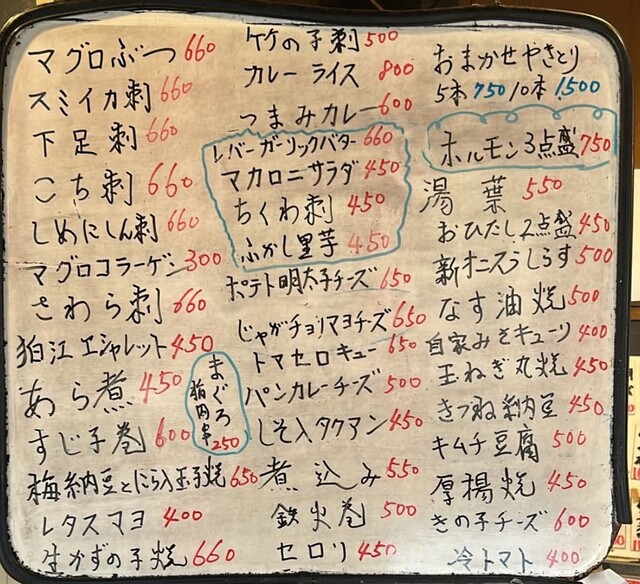 マグロぶつ 660
スミイカ刺 660
下足刺 660
こち刺 660
しめにしん刺 660
マグロコラーゲン 300
さわら刺 660
狛江エシャレット 450
あら煮 450
すじ子巻 600
梅納豆とにら入玉子焼 650
レタスマヨ 400
生かずの子焼 660
まぐろ
串 250
竹の子刺 500
カレーライス 800
つまみカレー 600
レバーガーリックバター 660
マカロニサラダ 450
ちくわ刺 450
ふかし里芋 450
ポテト明太子チーズ 650
じゃがチョリマヨチーズ 650
トマセロキュー 650
パンカレーチーズ 500
しそ入タクアン 450
煮込み 550
鉄火巻 500
セロリ 450
おまかせやきとり
5本 750 10本 1,500
ホルモン3点盛 750
湯葉 550
おひたし2点盛 450
新オニスうしらす 500
なす油焼 500
自家みそキューリ 400
玉ねぎ丸焼 450
きつね納豆 450
キムチ豆腐 500
厚揚焼 450
きの子チーズ 600
冷トマト 400